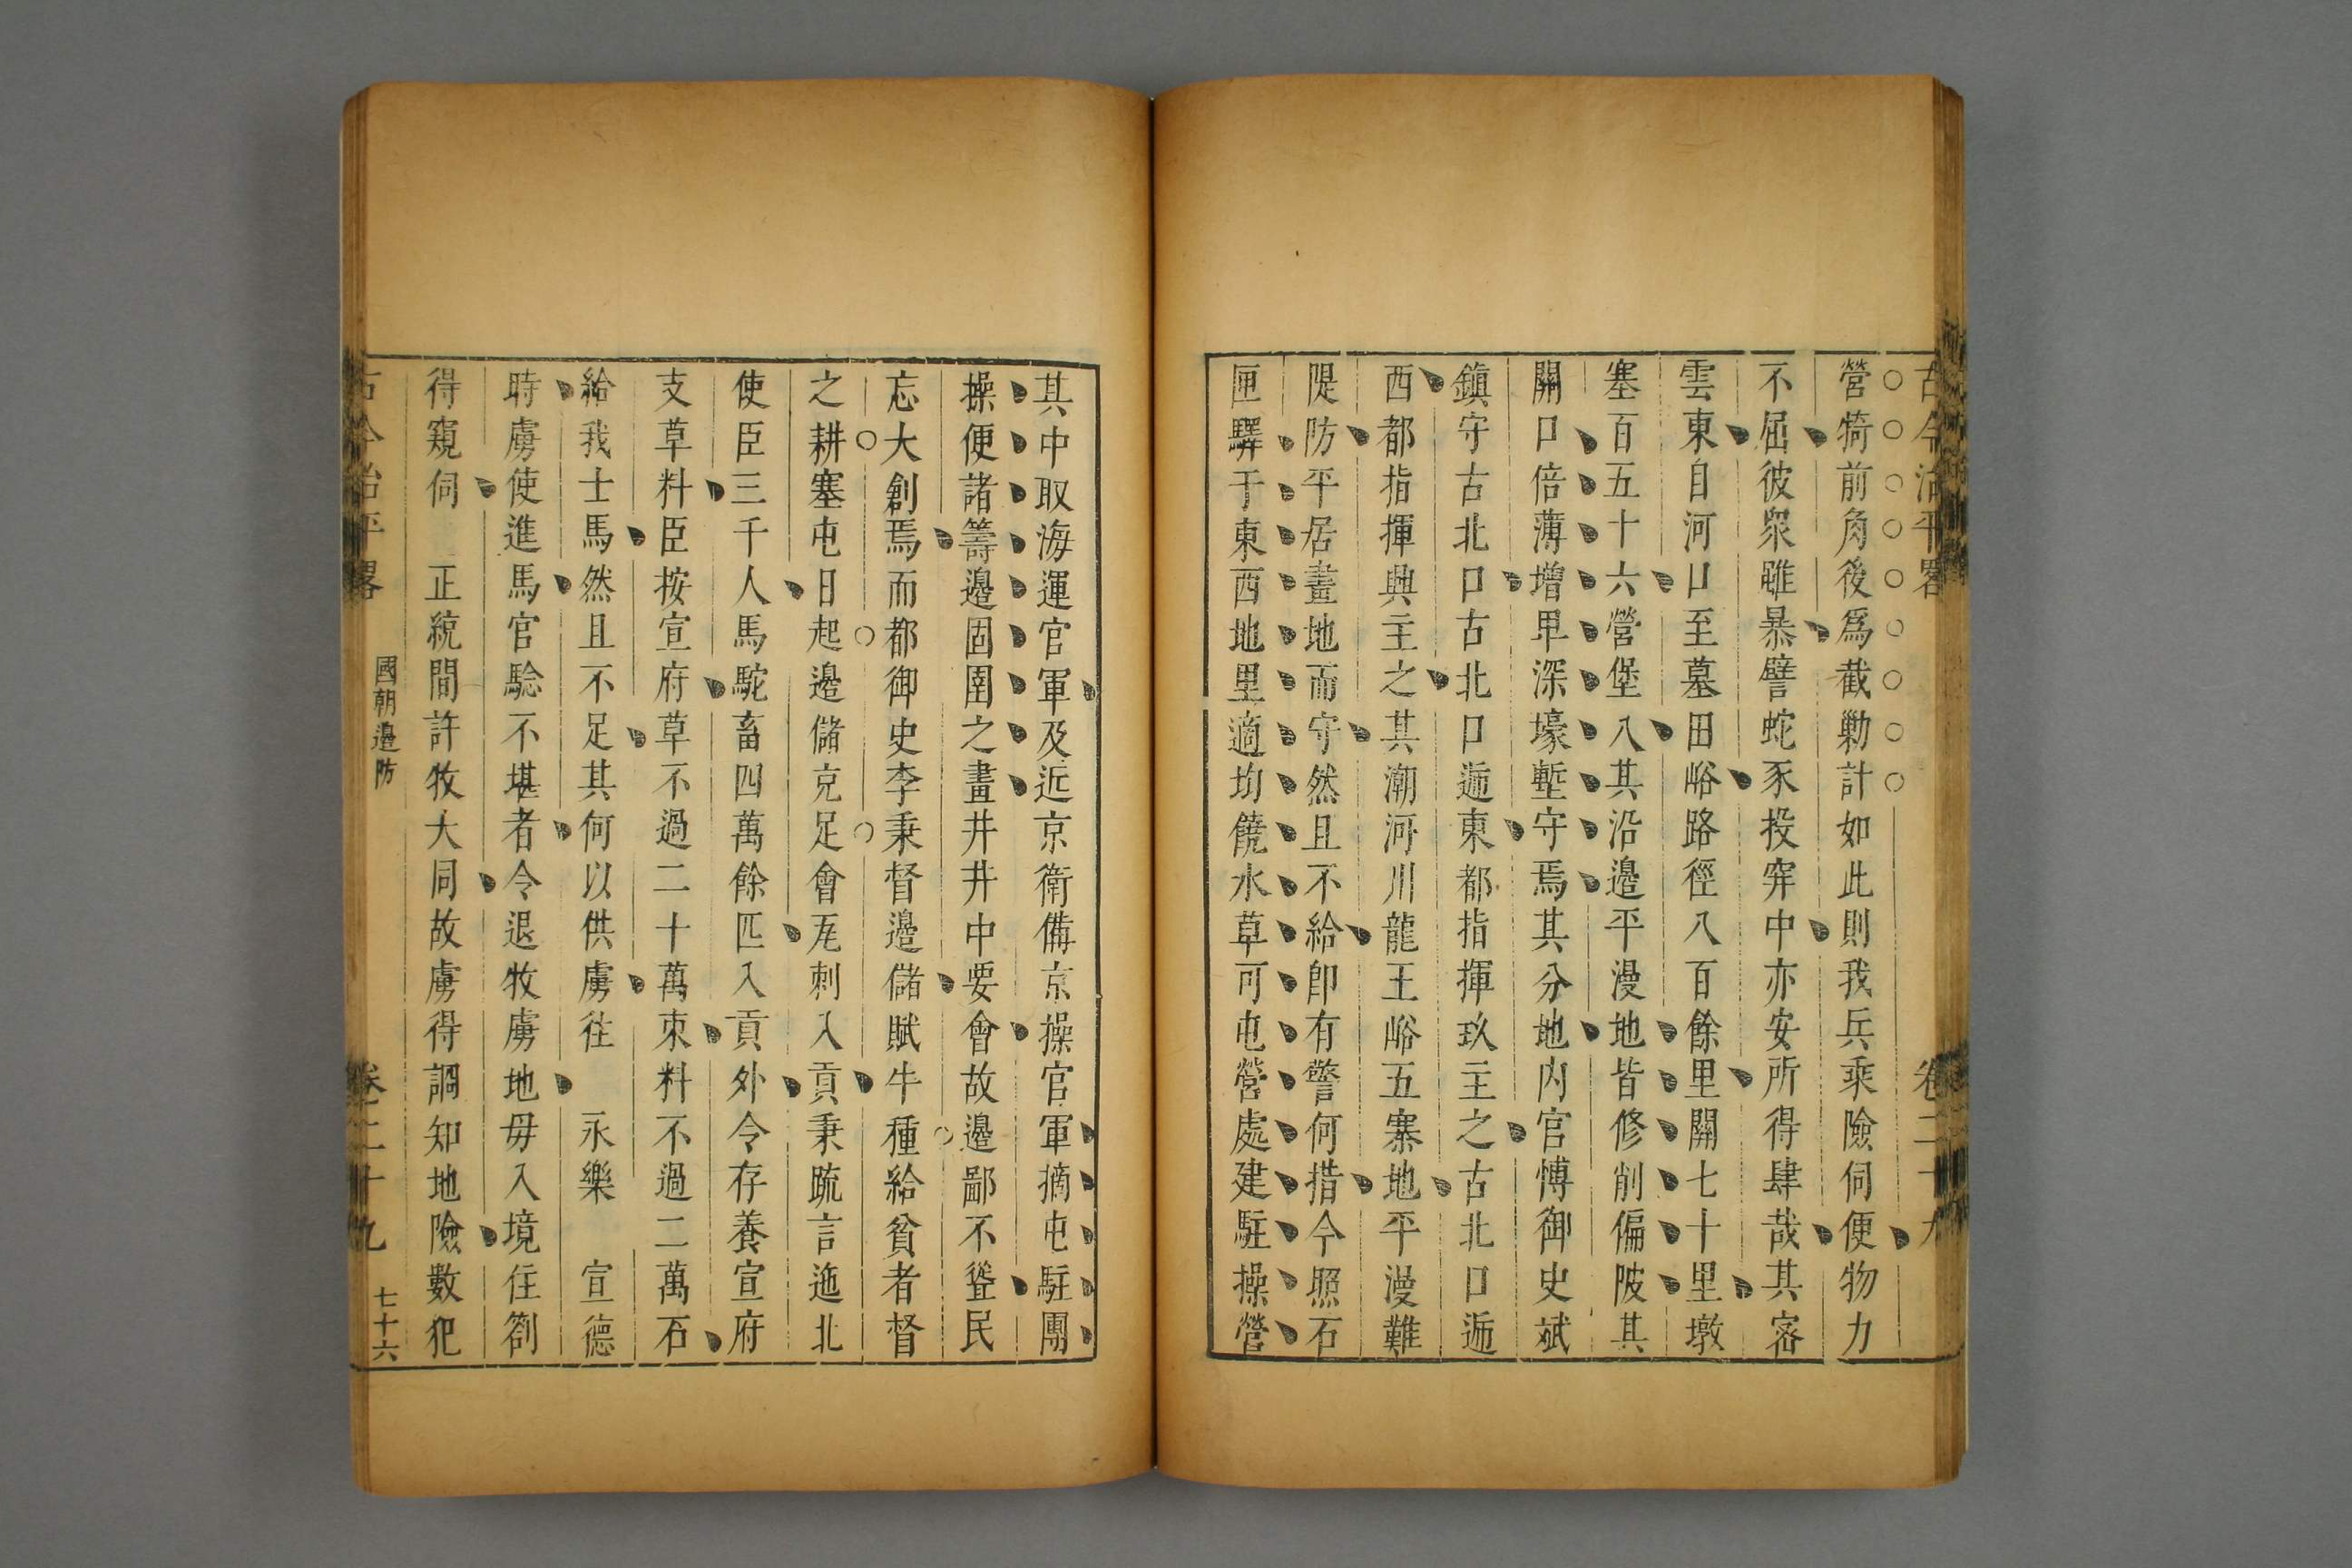 古今治平畧 卷二十九
營犄前角後爲截勦計如此則我兵乘險伺便物力
不屈彼衆雖暴譬蛇豕投穽中亦安所得肆哉其密
雲東自河口至墓田峪路徑八百餘里關七十里墩
塞百五十六營堡八其沿邊平漫地皆修削偏陂其
關口倍薄增畢深壕塹守焉其分地內官愽御史斌
鎮守古北口古北口迤東都指揮玖主之古北口迤
西都指揮興主之其潮河川龍王峪五寨地平漫難
隄防平居畫地而守然且不給卽有警何措今照石
匣驛于東西地里適均饒水草可屯營處建駐操營
其中取海運官軍及近京衛備京操官軍摘屯駐團
操便諸籌邊固圉之畫井井中要會故邊鄙不聳民
忘大創焉而都御史李秉督邊儲賦牛種給貧者督
之耕塞屯日起邊儲充足會瓦剌入貢秉疏言迤北
使臣三千人馬駝畜四萬餘匹入貢外令存養宣府
支草料臣按宣府草不過二十萬束料不過二萬石
給我士馬然且不足其何以供虜徃 永樂 宣德
時虜使進馬官驗不堪者令退牧虜地毋入境住劄
得窺伺 正統間許牧大同故虜得調知地險數犯
古今治平畧 國朝邊防 卷二十九 七十六